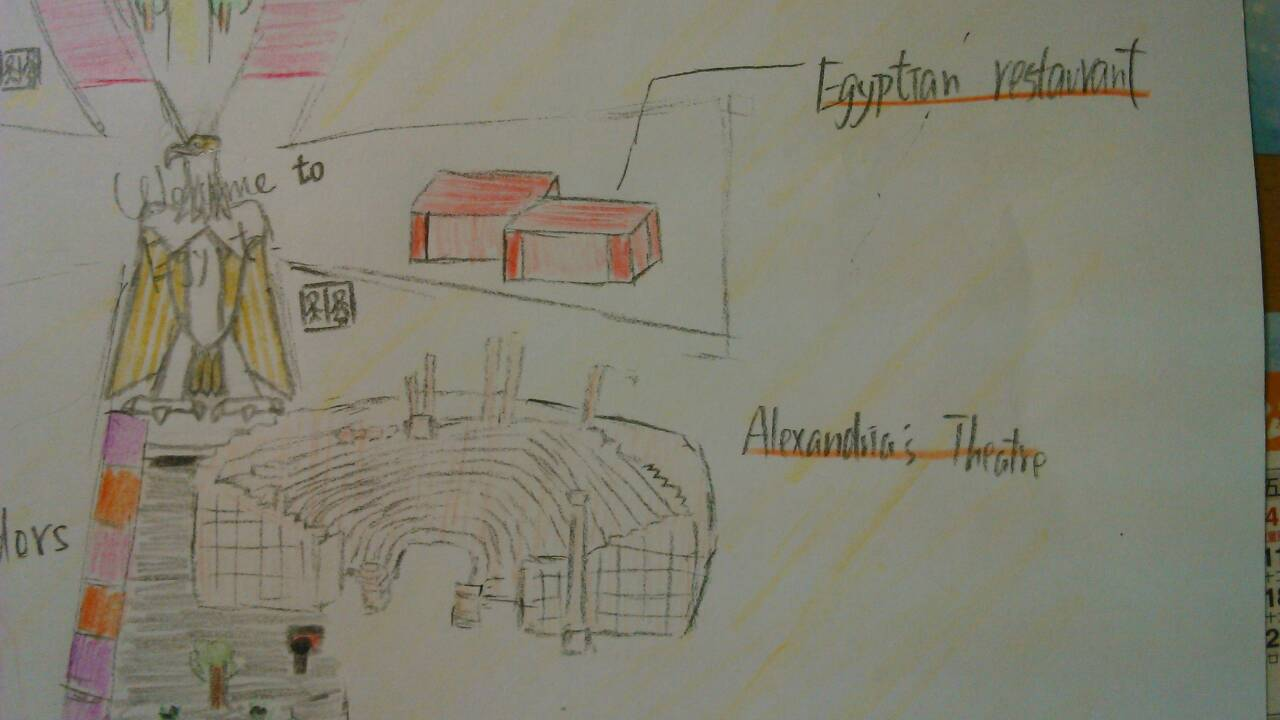 Egyptian restaurant
Welcome to
Egypt
Alexandria's Theatre